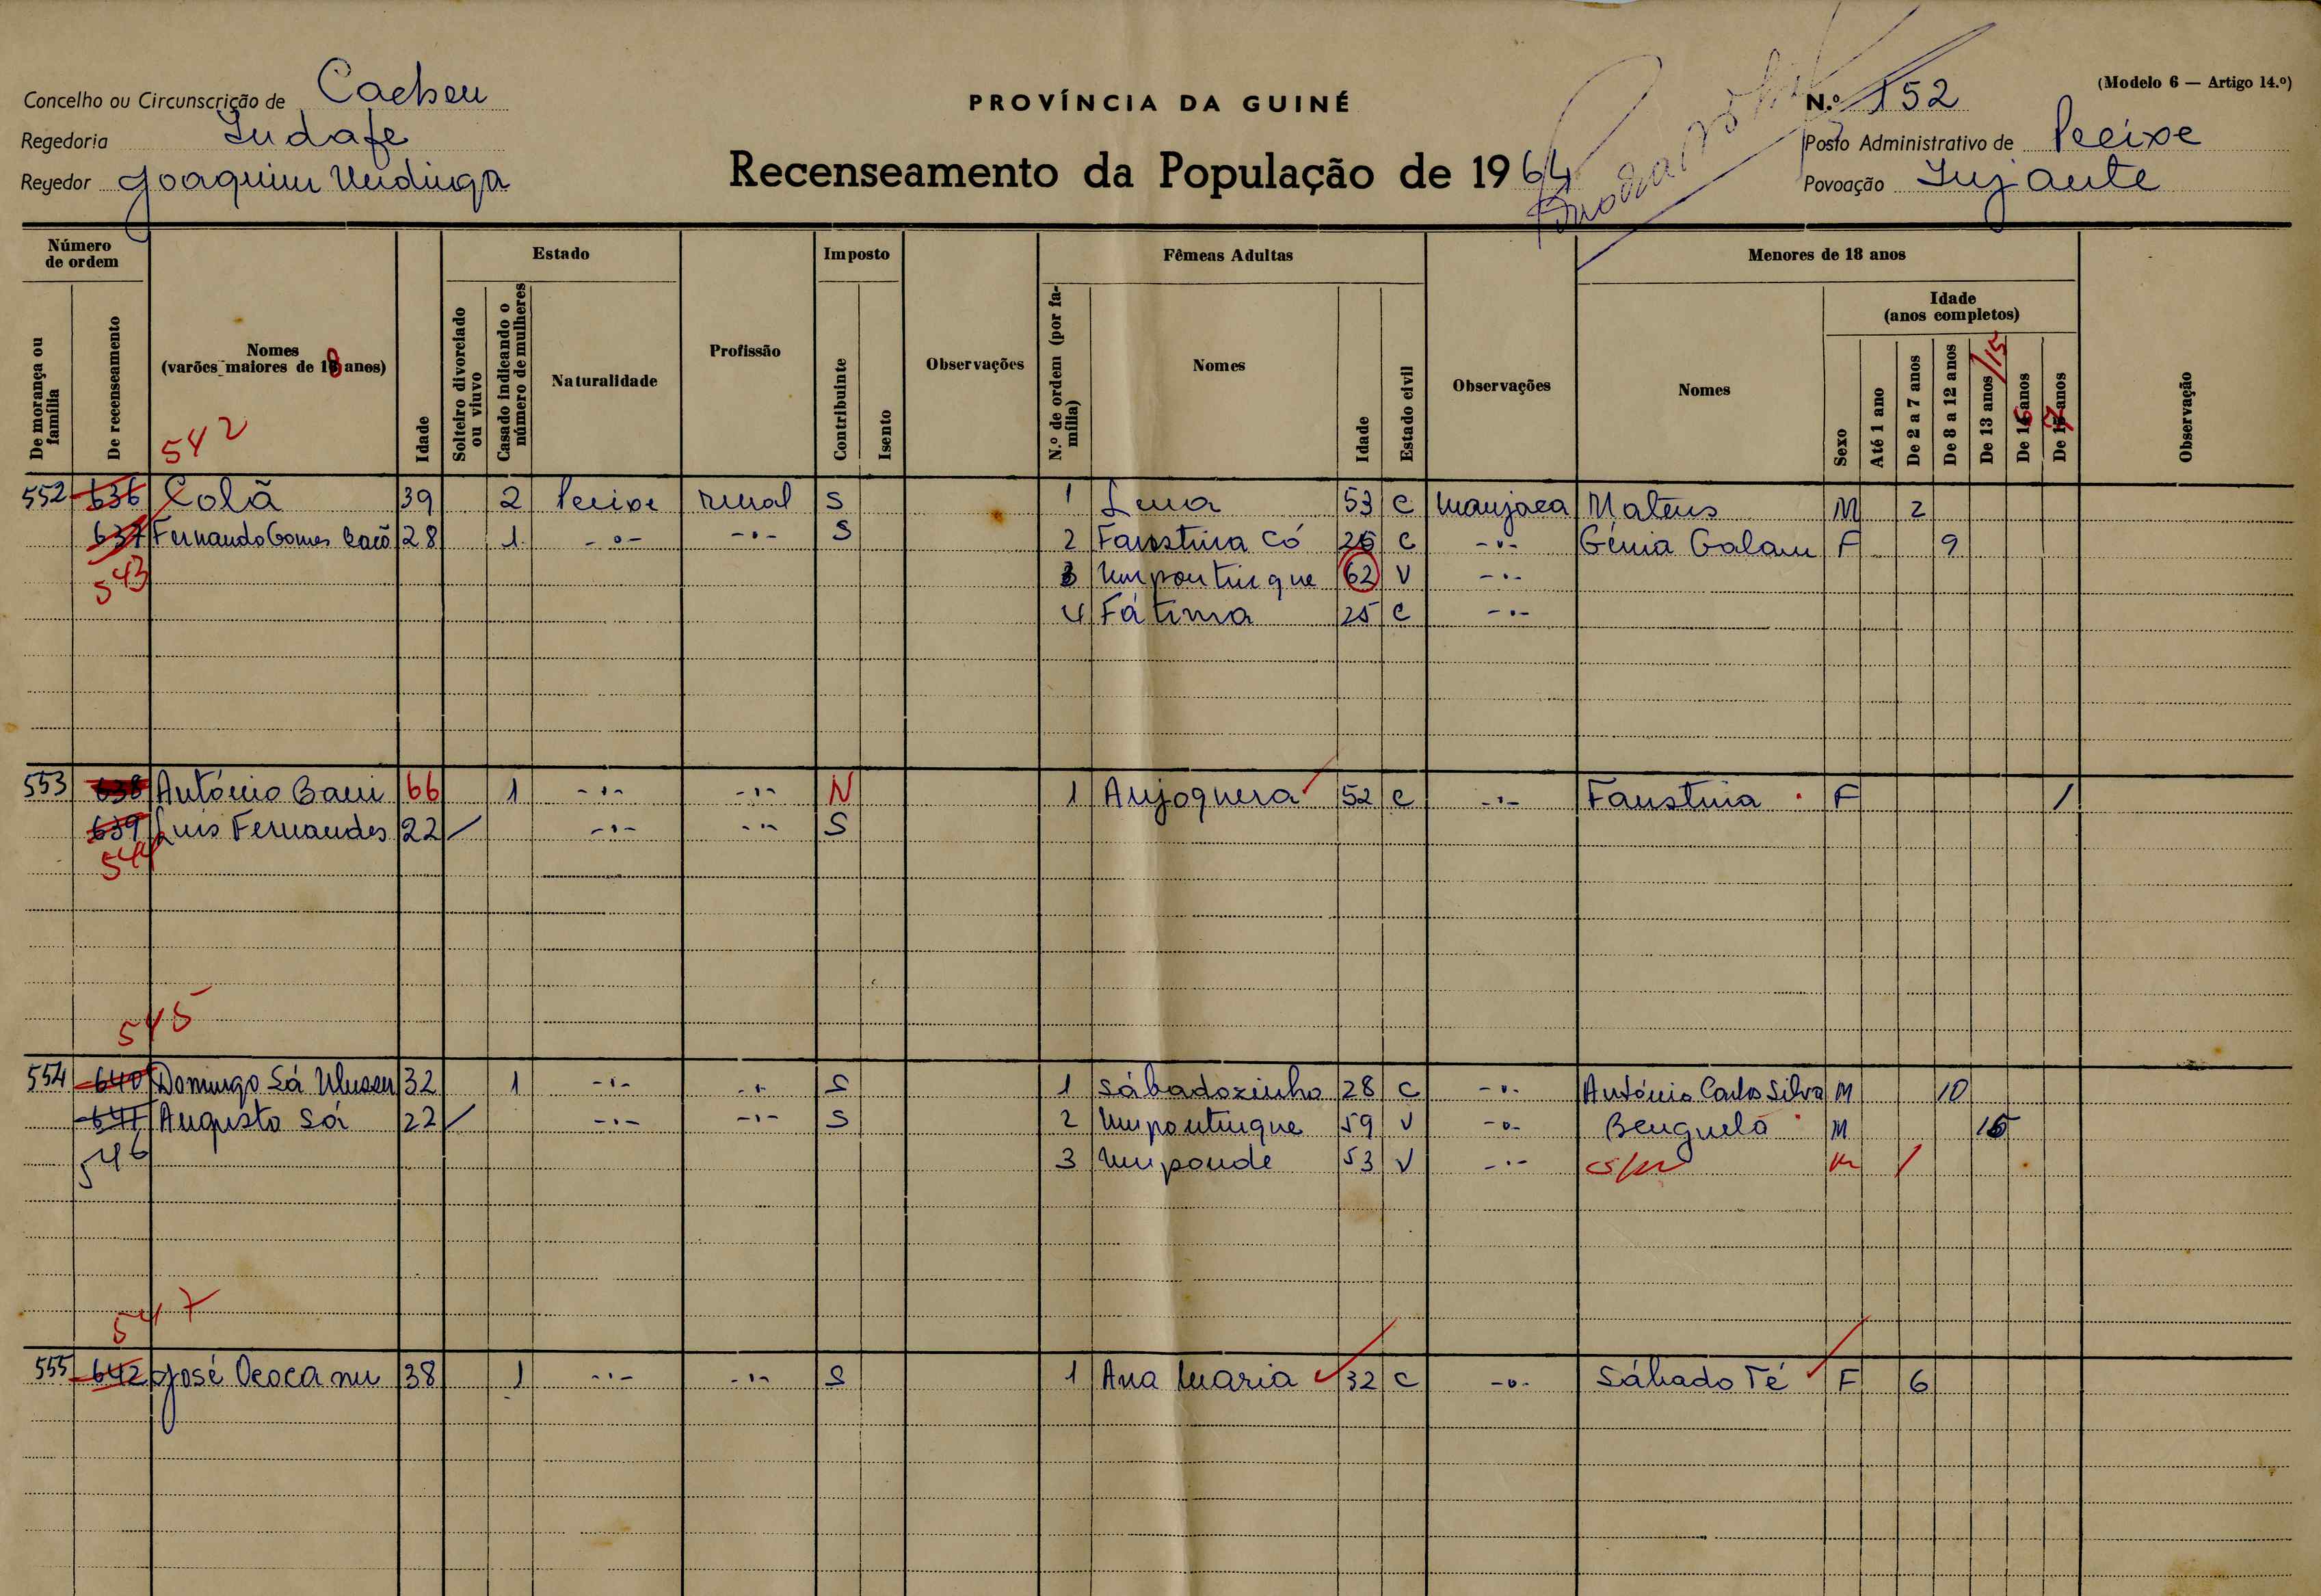 Concelho ou Circunscrição de Cacheu
PROVÍNCIA DA GUINÉ
N.º 152
(Modelo 6 — Artigo 14.º)
Regedoria Indafe
Posto Administrativo de Pecixe
Regedor Joaquim
Recenseamento da População de 1964
Povoação Injante
Número de ordem
Estado
Imposto
Fêmeas Adultas
Menores de 18 anos
De morança ou família
De recenseamento
Nomes (varões maiores de 18 anos)
Idade
Solteiro divorciado ou viuvo
Casado indicando o número de mulheres
Naturalidade
Profissão
Contribuinte
Isento
Observações
N.º de ordem (por família)
Nomes
Idade
Estado civil
Observações
Nomes
Sexo
Idade (anos completos)
Até 1 ano
De 2 a 7 anos
De 8 a 12 anos
De 13 anos /15
De 16 anos
De 17 anos
Observação
542
552 636 Colã 39 2 Pecixe rural S 1 Lena 53 C Manjaca Mateus M 2
637 Fernando Gomes Caió 28 1 -"- -"- S 2 Faustina Có 26 C -"- Génia Galam F 9
543 3 Umpontinque 62 V -"-
4 Fátima 25 C -"-
553 638 António Bani 66 1 -"- -"- N 1 Anjoquera 52 C -"- Faustina F /
639 Luis Fernandes 22 / -"- -"- S
544
545
554 640 Domingo Sá 32 1 -"- -"- S 1 Sábadozinho 28 C -"- António Carlos Silva M 10
641 Augusto Sá 22 / -"- -"- S 2 Umpontinque 59 V -"- Benguelà M 15
546 3 Umponde 53 V -"- s/n M /
547
555 642 José 38 1 -"- -"- S 1 Ana Maria 32 C -"- Sábado Té F 6